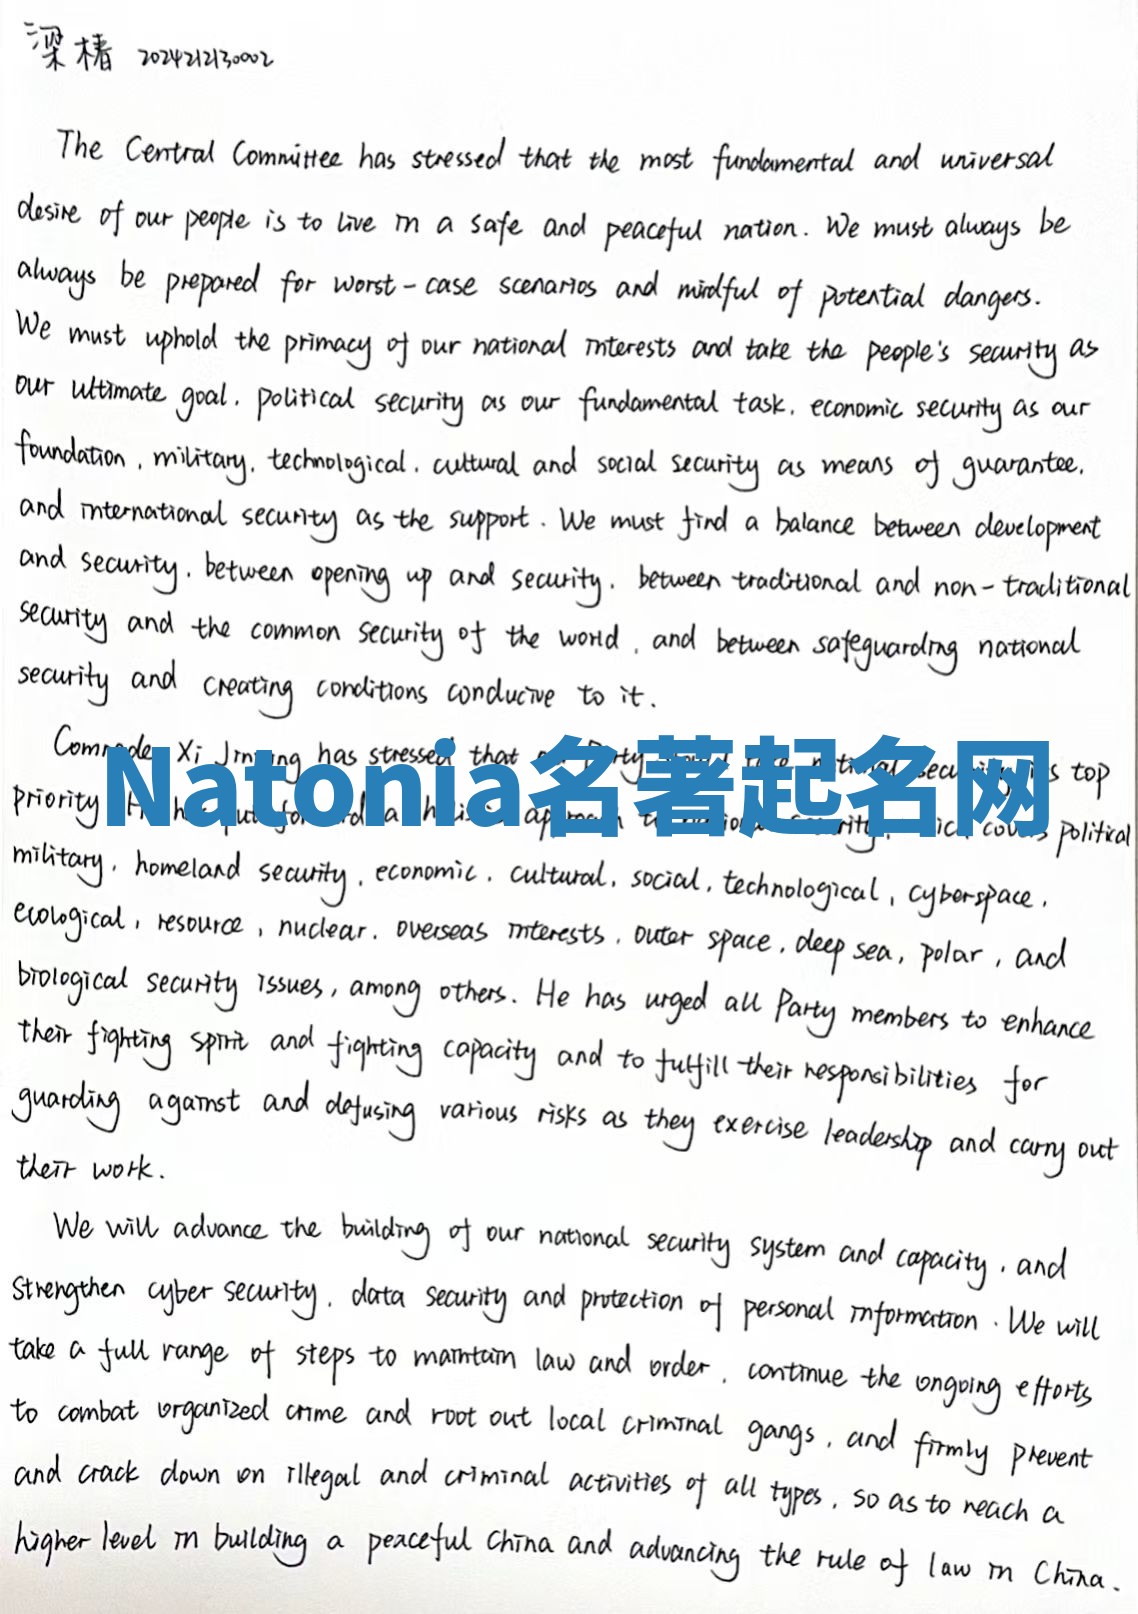 梁椿 2024212130002
The Central Committee has stressed that the most fundamental and universal
desire of our people is to live in a safe and peaceful nation. We must always be
always be prepared for worst-case scenarios and mindful of potential dangers.
We must uphold the primacy of our national interests and take the people's security as
our ultimate goal, political security as our fundamental task, economic security as our
foundation, military, technological, cultural and social security as means of guarantee,
and international security as the support. We must find a balance between development
and security, between opening up and security, between traditional and non-traditional
security and the common security of the world, and between safeguarding national
security and creating conditions conducive to it.
Comrade Xi Jinping has stressed that Party national security its top
Natonia名著起名网
priority put forward a approach covers political
military, homeland security, economic, cultural, social, technological, cyberspace,
ecological, resource, nuclear, overseas interests, outer space, deep sea, polar, and
biological security issues, among others. He has urged all Party members to enhance
their fighting spirit and fighting capacity and to fulfill their responsibilities for
guarding against and defusing various risks as they exercise leadership and carry out
their work.
We will advance the building of our national security system and capacity, and
strengthen cyber security, data security and protection of personal information. We will
take a full range of steps to maintain law and order, continue the ongoing efforts
to combat organized crime and root out local criminal gangs, and firmly prevent
and crack down on illegal and criminal activities of all types, so as to reach a
higher level in building a peaceful China and advancing the rule of law in China.